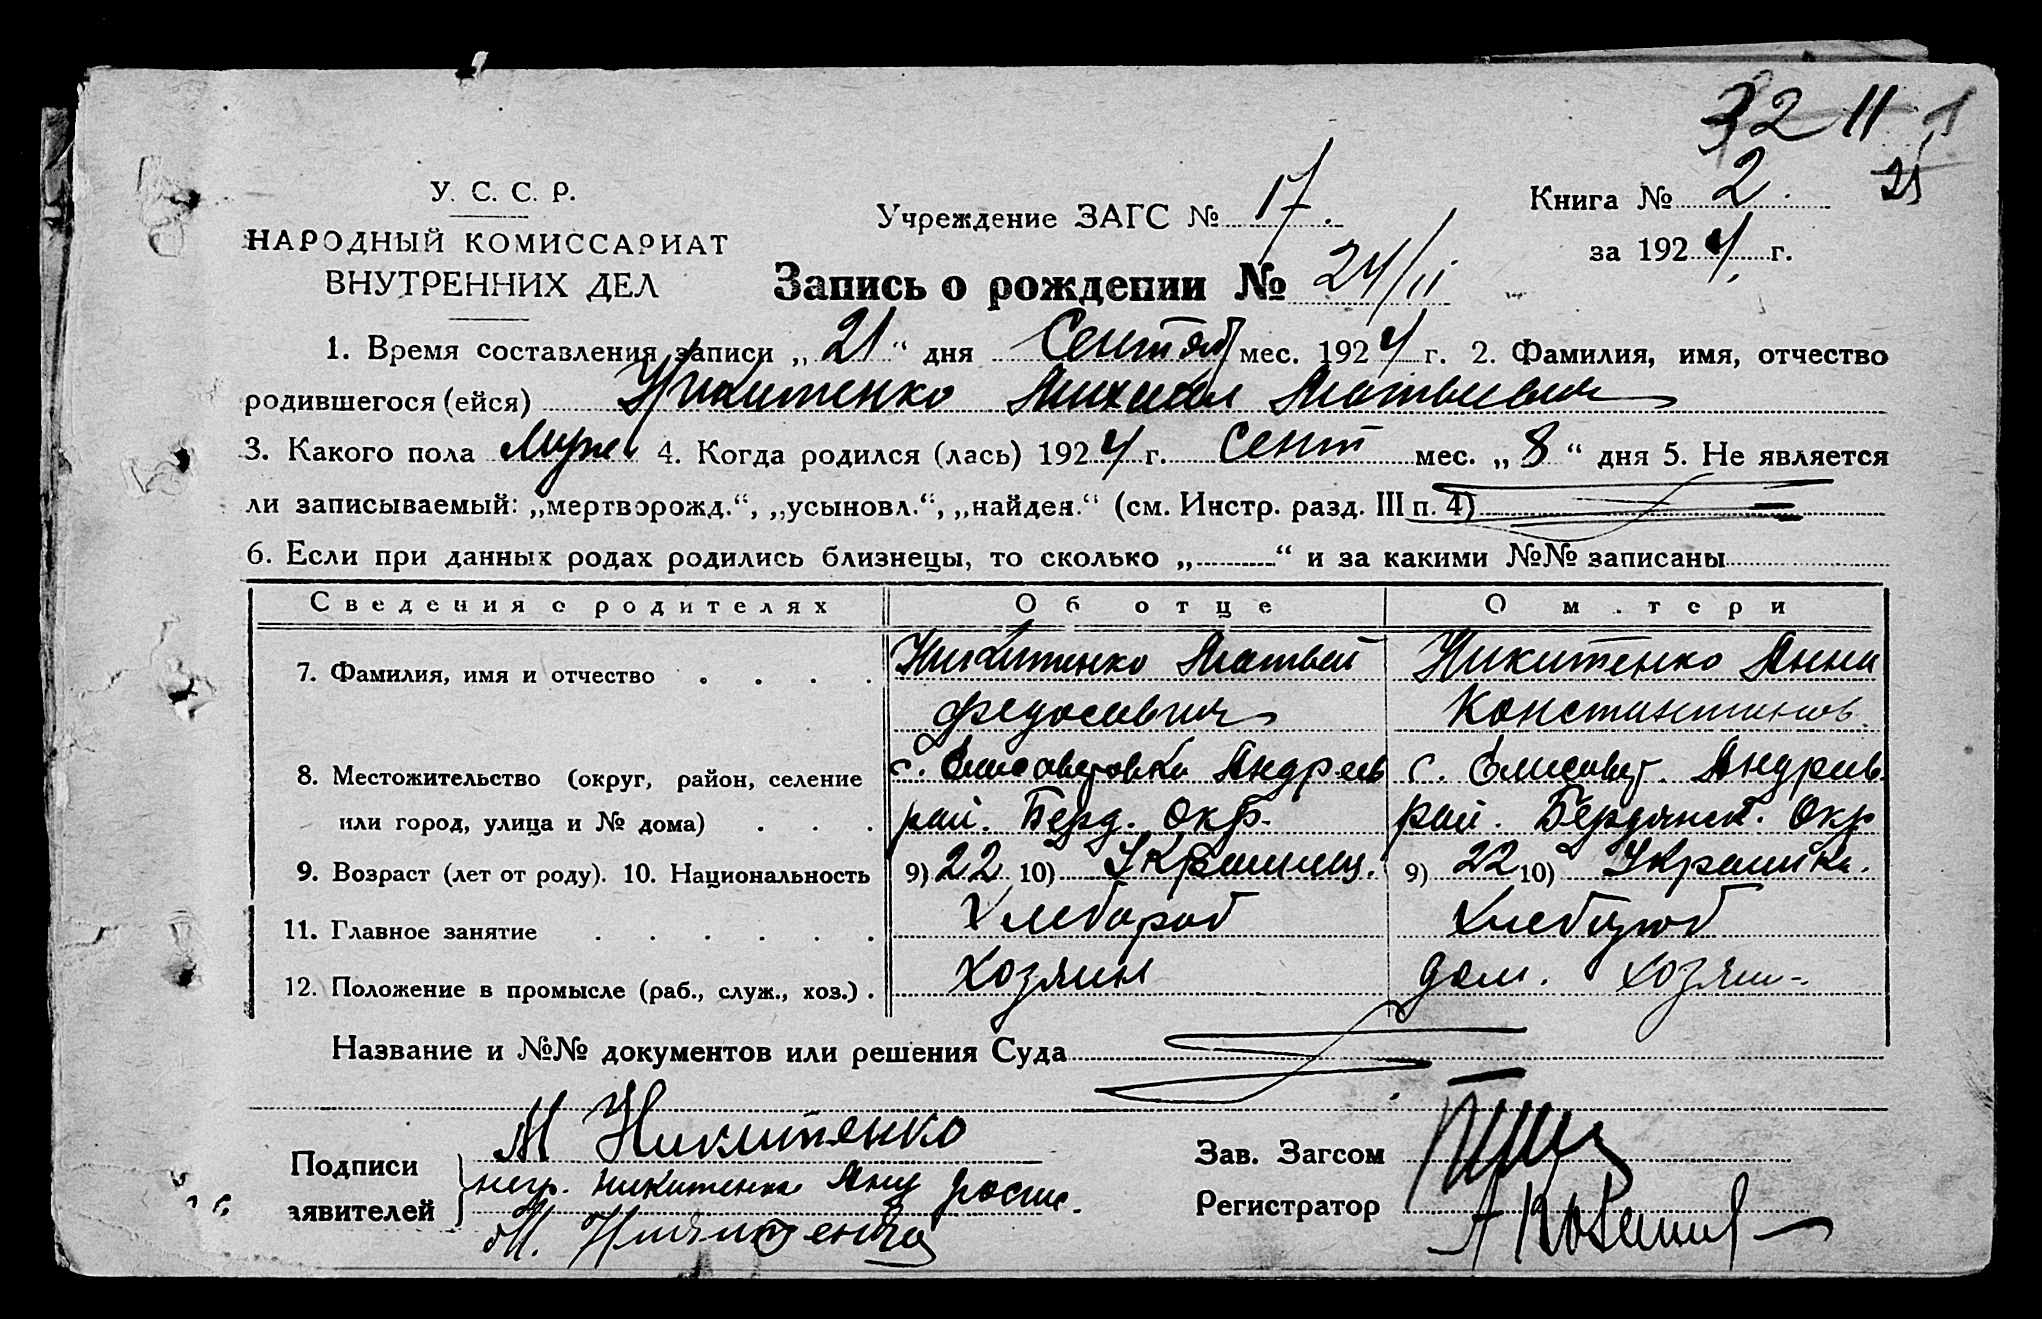 32 11 1
25
У. С. С. Р.
НАРОДНЫЙ КОМИССАРИАТ
ВНУТРЕННИХ ДЕЛ
Учреждение ЗАГС № 17.
Книга № 2.
за 1924 г.
Запись о рождении № 24/II
1. Время составления записи „21“ дня Сентяб мес. 1924 г. 2. Фамилия, имя, отчество
родившегося (ейся) Никитенко Михаил Матвеевич
3. Какого пола Муж 4. Когда родился (лась) 1924 г. Сент мес. „8“ дня 5. Не является
ли записываемый: „мертворожд.“, „усыновл.“, „найден.“ (см. Инстр. разд. III п. 4)
6. Если при данных родах родились близнецы, то сколько „ “ и за какими №№ записаны
Сведения о родителях Об отце О м.тери
7. Фамилия, имя и отчество Никитенко Матвей Никитенко Анна
Федосович Константинов.
8. Местожительство (округ, район, селение с. Елисаветовка Андреев с. Елисовет. Андреев.
или город, улица и № дома) рай. Берд. Окр. рай. Бердянск. Окр
9. Возраст (лет от роду). 10. Национальность 9) 22 10) Украинец. 9) 22 10) Украинка.
11. Главное занятие Хлебороб Хлебороб
12. Положение в промысле (раб., служ., хоз.) . Хозяин дом. хозяи-
Название и №№ документов или решения Суда
Подписи М Никитенко
аявителей негр. Никитенко Анну распис.
М. Никитенко
Зав. Загсом
Регистратор